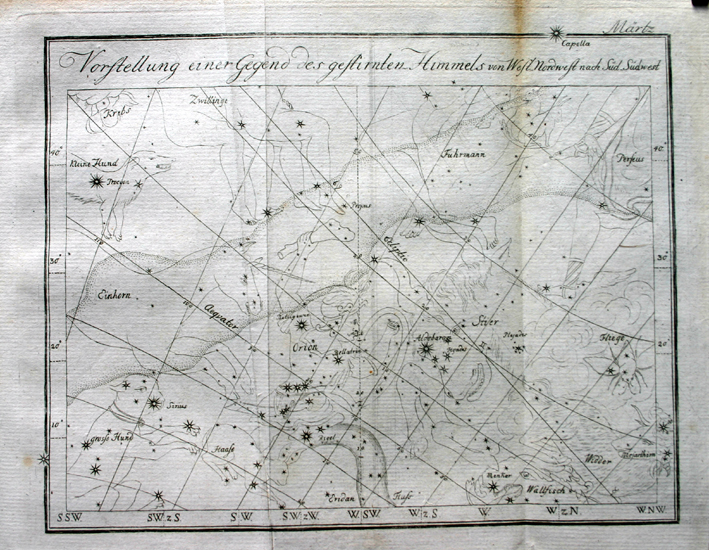 Märtz
Capella
Vorstellung einer Gegend des gestirnten Himmels von West Nordwest nach Süd Südwest
Krebs
Zwillinge
40°
Fuhrmann
40°
Kleine Hund
Perseus
Procyon
Propus
Ecliptic
30°
30°
Einhorn
Aequator
Stier
Orion
Aldebaran
Fliege
20°
20°
Bellatrix
Plejades
Hyades
Sirius
10°
10°
grosse Hund
Haase
Rigel
Widder
Menkar
Eridan
Fluss
Wallfisch
SSW. SW z S. SW. SW z W. WSW. W z S W W z N. WNW